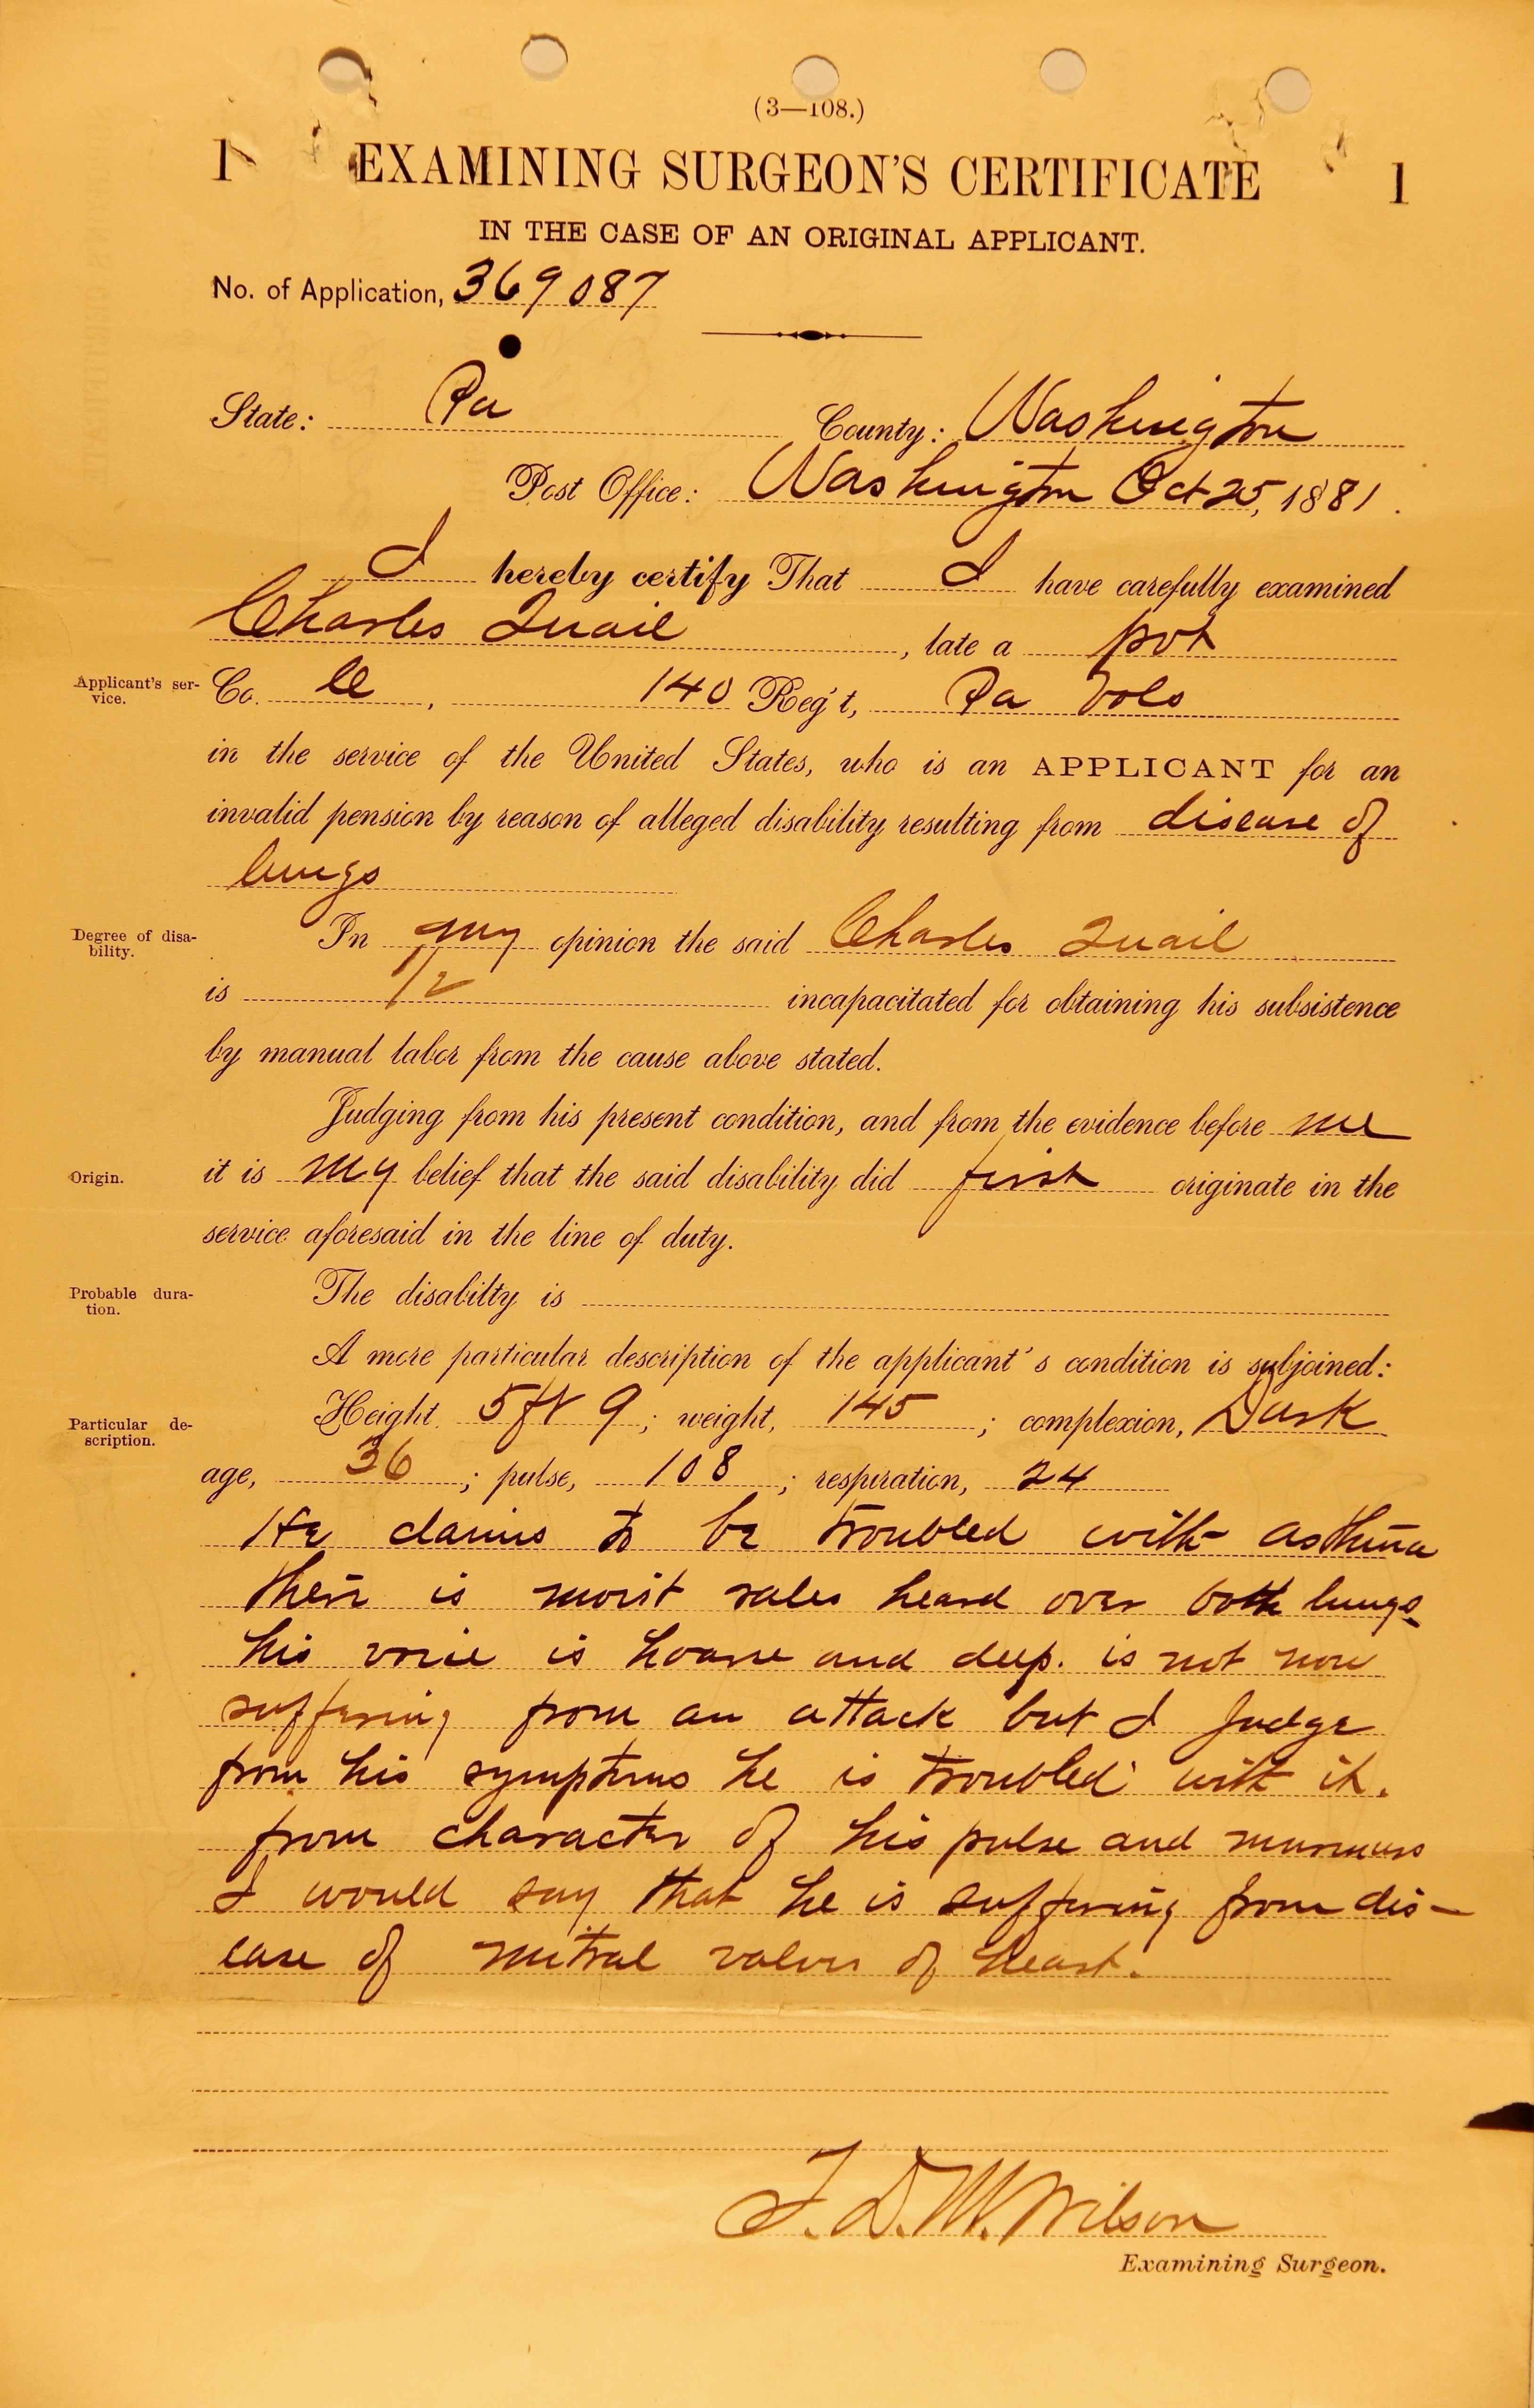 (3—108.)
1 EXAMINING SURGEON'S CERTIFICATE 1
IN THE CASE OF AN ORIGINAL APPLICANT.
No. of Application, 369087
State: Pa County: Washington
Post Office: Washington Oct 25, 1881.
I hereby certify That I have carefully examined
Charles Quail, late a pvt
Applicant's ser-
vice.
Co. C, 140 Reg't, Pa Vols
in the service of the United States, who is an APPLICANT for an
invalid pension by reason of alleged disability resulting from disease of
lungs
Degree of disa-
bility.
In my opinion the said Charles Quail
is 1/2 incapacitated for obtaining his subsistence
by manual labor from the cause above stated.
Judging from his present condition, and from the evidence before me
Origin.
it is my belief that the said disability did first originate in the
service aforesaid in the line of duty.
Probable dura-
tion.
The disabilty is
A more particular description of the applicant's condition is subjoined:
Particular de-
scription.
Height 5 ft 9; weight, 145; complexion, Dark
age, 36; pulse, 108; respiration, 24
He claims to be troubled with asthma
there is moist rales heard over both lungs
his voice is hoarse and deep. is not now
suffering from an attack but I judge
from his symptoms he is troubled with it.
from character of his pulse and murmurs
I would say that he is suffering from dis-
ease of mitral valves of heart.
T. D. M. Wilson
Examining Surgeon.